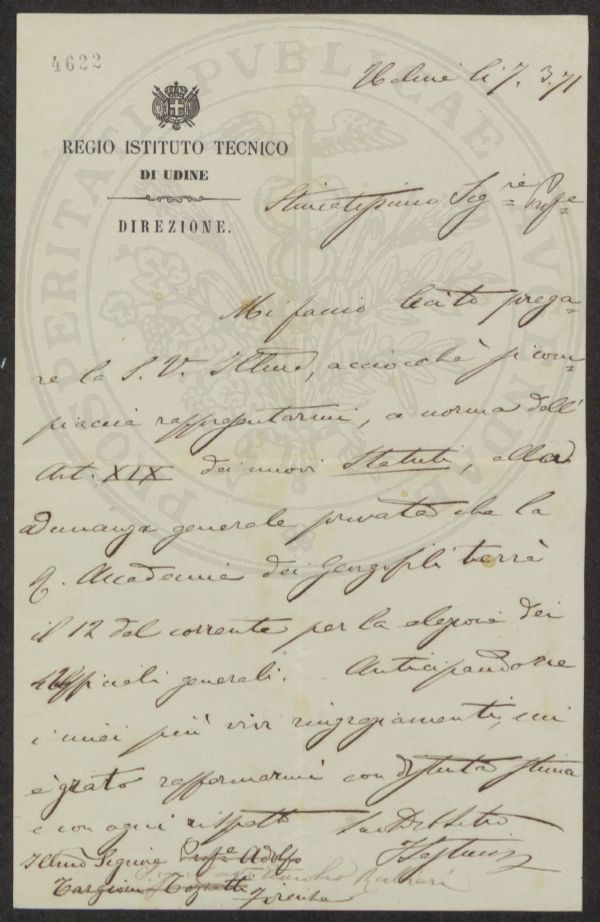 4622
Udine li 7. 3. 71
REGIO ISTITUTO TECNICO
DI UDINE
DIREZIONE.
Stimatissimo Sig.re Profe
Mi faccio lecito prega=
re la S. V. Illma, acciocchè si com=
piaccia rappresentarmi, a norma dell'
Art. XIX dei nuovi Statuti, alla
adunanza generale privata che la
R. Accademia dei Georgofili terrà
il 12 del corrente per la elezione dei
Uffiziali generali. Anticipandone
i miei più vivi ringraziamenti, mi
è grato raffermarmi con distinta stima
e con ogni rispetto Suo Devoto
Illmo Signore Profe Adolfo
Targioni Tozzetti
Firenze
PROSPERITATI PVBLICAE AVGENDAE